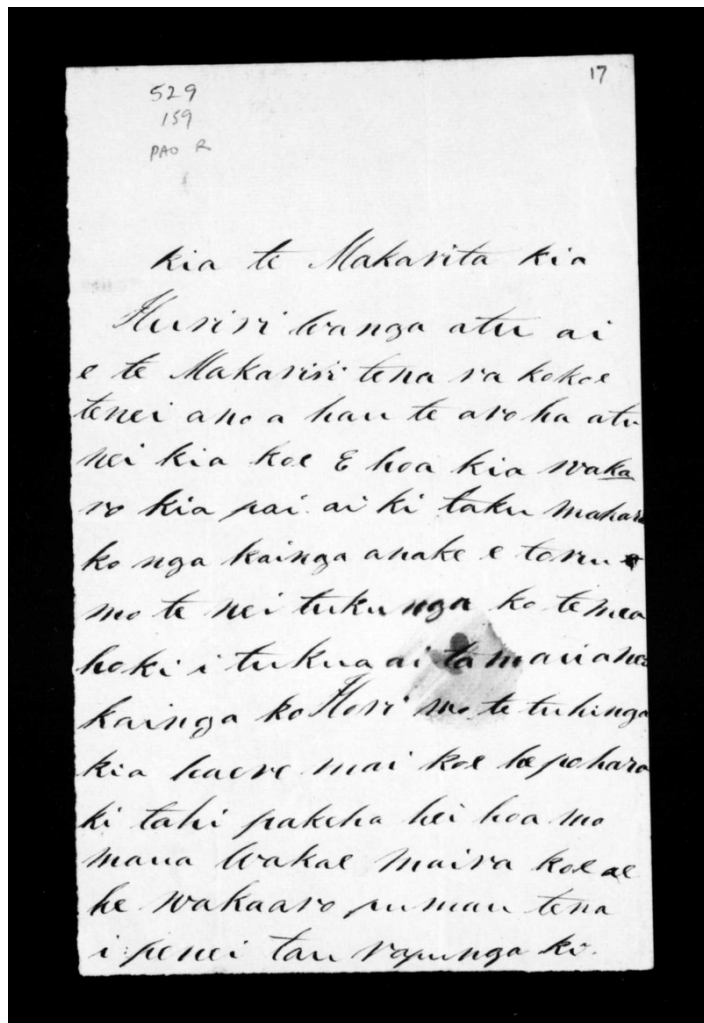 17
529
159
PAO R
kia te Makarita kia
Huriri wanga atu ai
e te Makariri tena ra kokoe
tenei ano a hau te aroha atu
nei kia koe E hoa kia waka
ro kia pai ai ki taku mahara
ko nga kainga anake e toru
mo te nei tuku nga ko te mea
hoki i tukua ai ta maua nei
kainga ko Hori mo te tuhinga
kia haere mai koe he pohara
ki tahi pakeha hei hoa mo
maua Wakae maira koe ae
he wakaaro pumau tena
i penei tau rapunga ki.